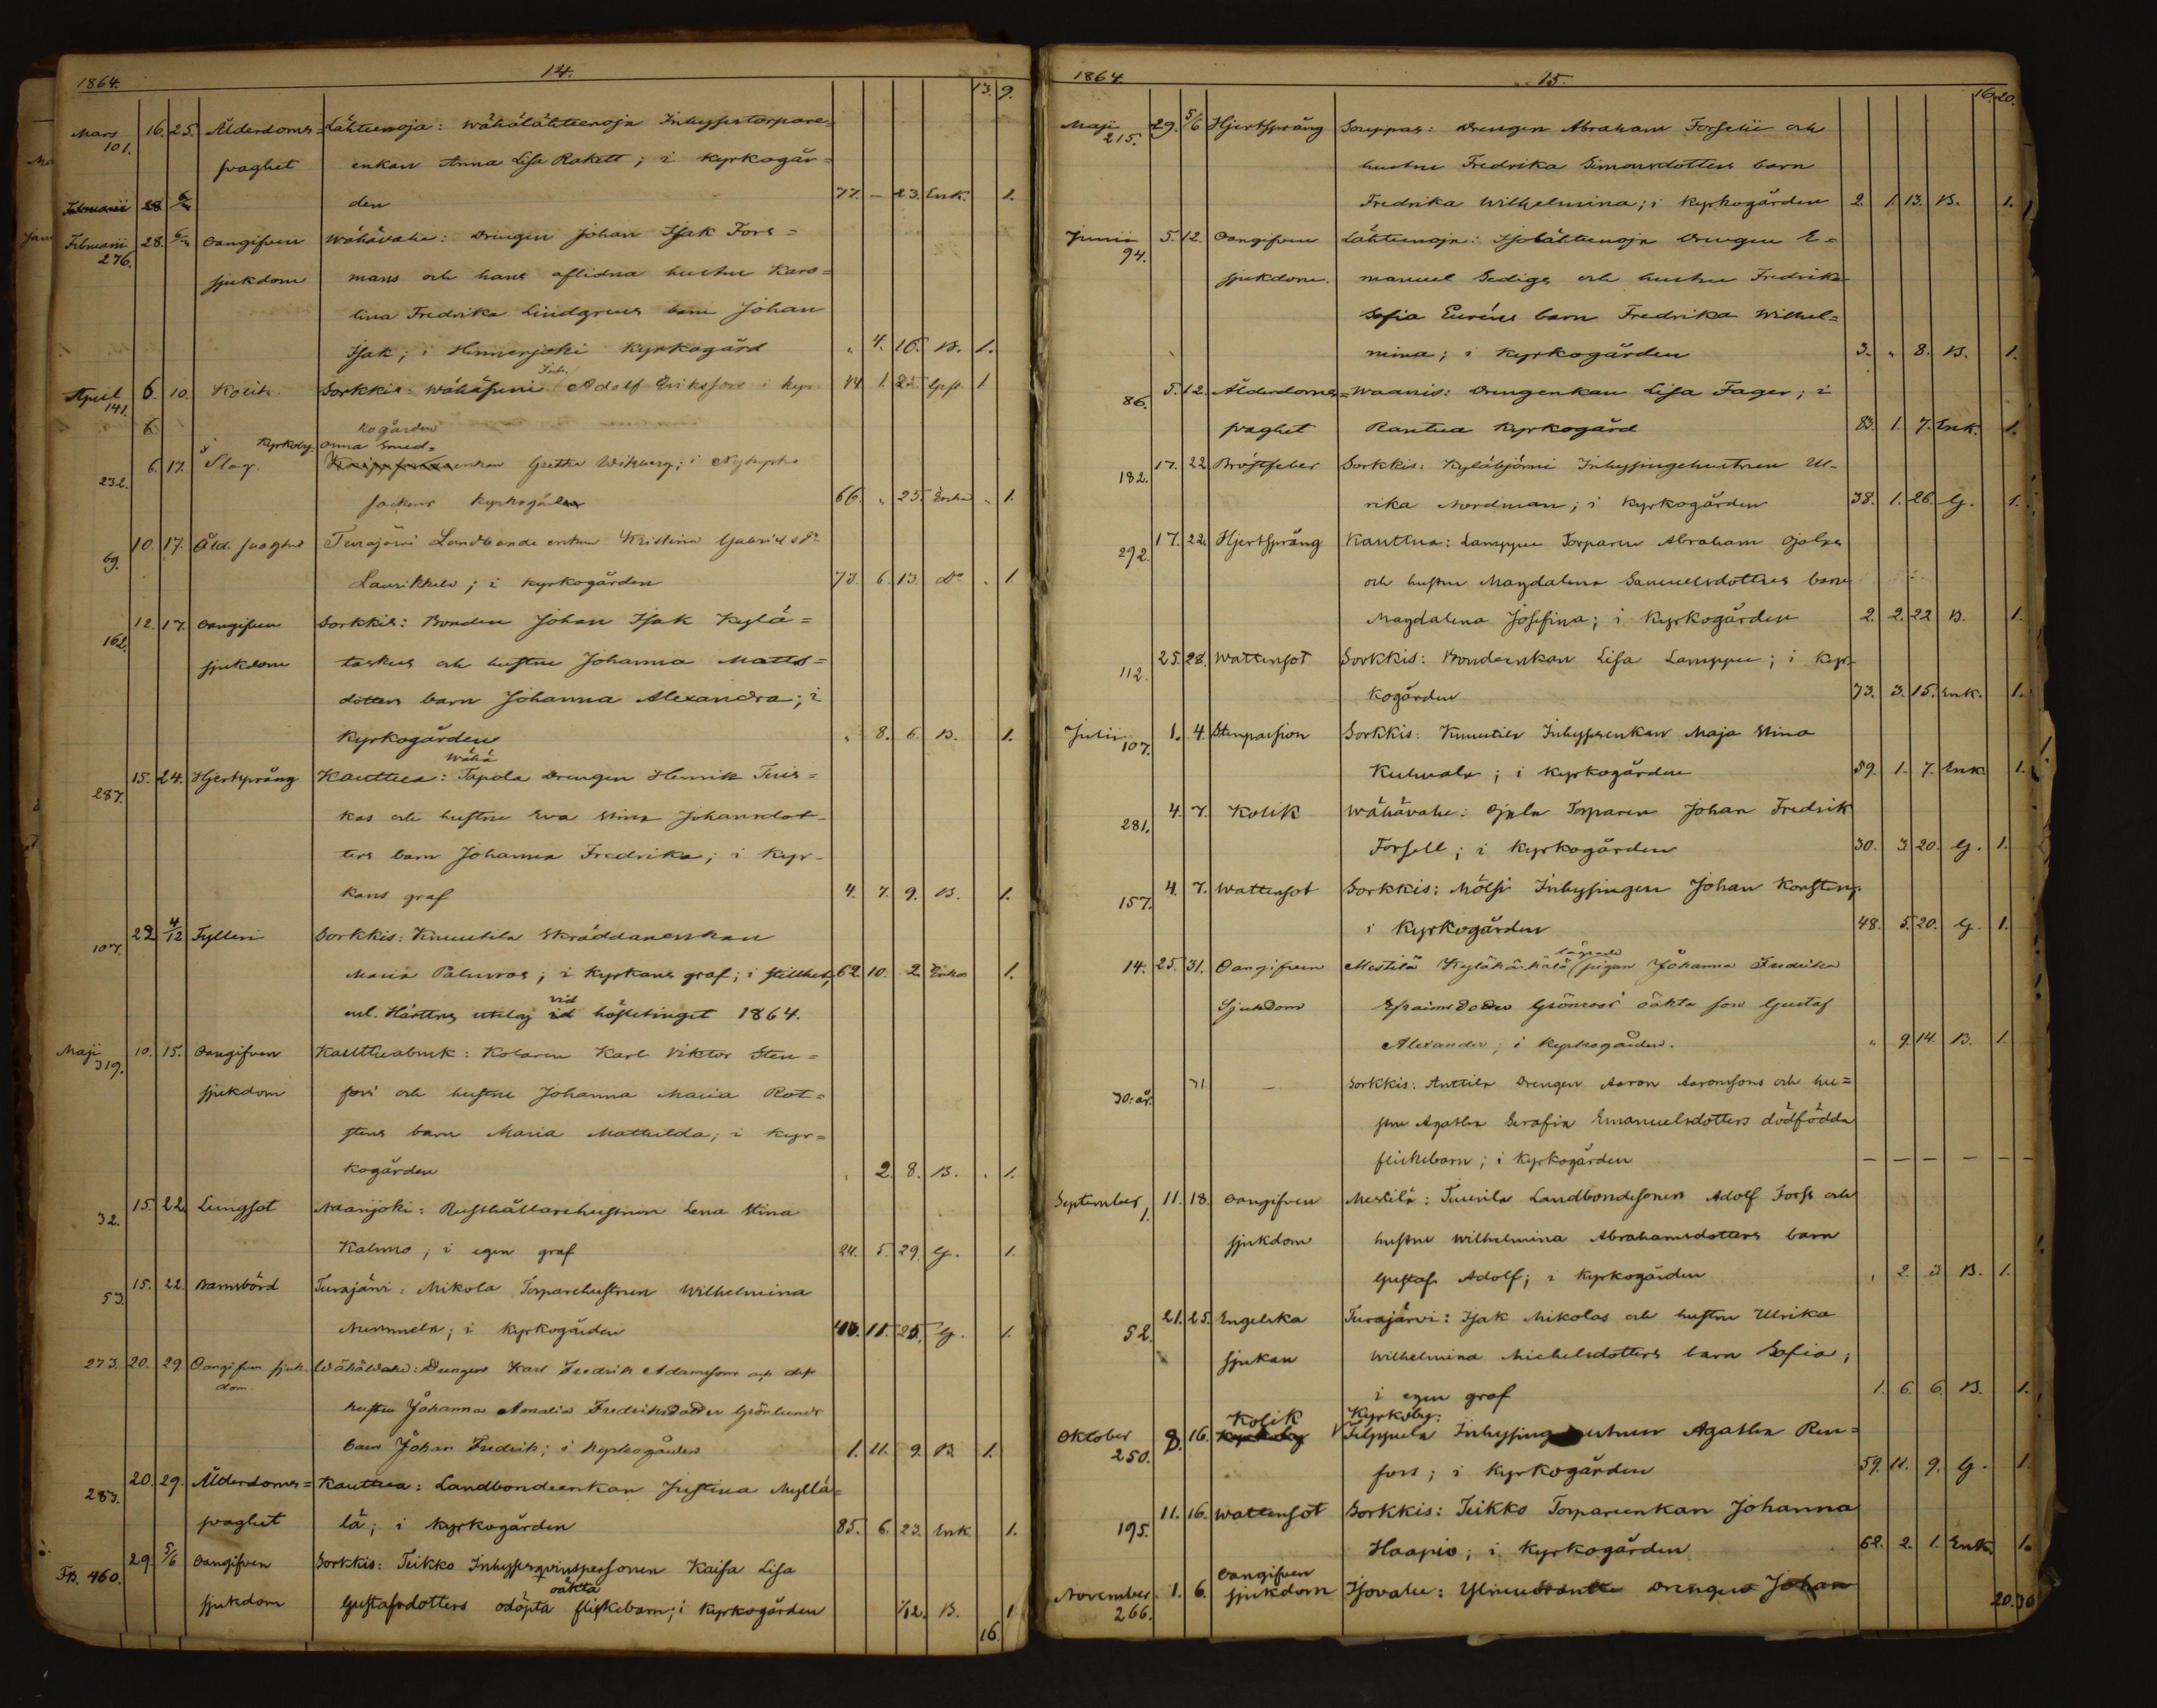 1864. 14.
13. 9.
Mars 101. 16. 25. Ålderdoms= Lähteenoja: Wähälähteenoja Inhysestorpare=
svaghet enkan Anna Lisa Rakett; i kyrkogår=
Februarii 28 den 77. — 23. Enk. 1.
Februarii 276. 28. Oangifven Wähävahe: Drengen Johan Isak Fors=
sjukdom mans och hans aflidna hustru Karo=
lina Fredrika Lindgrens barn Johan
Isak; i Hinnerjoki kyrkogård " 4. 16. B. 1.
April 141. 6. 10. Kolik. Sorkkis: Wähäsuni Inh. Adolf Eriksson i kyr. 1. 25. 1
6. kogården
232. 6. 17. Slag. Kyrkoby. Smed=
enkan Gretha Wikberg; i Nykyrko
sockens kyrkogård 66. " 25. Enka " 1.
69. 10. 17. Åld. svaghet Turajärvi Landbonde enkan Kristina Gabriels dr
Laurikkala; i kyrkogården 73. 6. 13. Do . 1.
162. 12. 17. Oangifven Sorkkis: Bonden Johan Isak Kylä=
sjukdom taskus och hustru Johanna Matts=
dotters barn Johanna Alexandra; i
kyrkogården " 8. 6. B. 1.
Wähä
287. 15. 24. Hjertsprång Kauttua: Tapola Drengen Henrik Tuis=
kas och hustru Eva Stina Johansdot=
ters barn Johanna Fredrika; i kyr=
kans graf 4. 7. 9. B. 1.
107. 22 4/12 Fylleri Sorkkis: Knuutila Skräddareenkan
Maria Palmros; i kyrkans graf; i stillhet, 62. 10. 2. Enka 1.
enl. Härttns utslag vid hösttinget 1864.
Maji 319. 10. 15. Oangifven Kauttuabruk: Kolaren Karl Viktor Sten=
sjukdom fors och hustru Johanna Maria Rot=
stens barn Maria Mathilda; i kyr=
kogården " 2. 8. B. . 1.
32. 15. 22. Lungsot Naarjoki: Rusthållarehustrun Lena Stina
Kalmo; i egen graf 24. 5. 29. G. 1.
53. 15. 22. Barnsbörd Turajärvi: Mikola Torparehustrun Wilhelmina
Nummela; i kyrkogården 11. 25. G. 1.
273. 20. 29 Oangifven sjuk= Wähävahe: Drengen Karl Fredrik Adamsson och dess
dom. hustru Johanna Amalia Fredriksdotter Grönlunds
barn Johan Fredrik; i kyrkogården 1. 11. 9. B 1.
283. 20. 29. Ålderdoms= Kauttua: Landbondeenkan Justina Myllä=
svaghet lä; i kyrkogården 85. 6. 23. Enk. 1.
Fb. 460. 29. 5/6 Oangifven Sorkkis: Teikko Inhysesqvinspersonen Kaisa Lisa
oäkta
sjukdom Gustafsdotters odöpta flickebarn; i kyrkogården 1/12. B. 1
16.
1864. 15.
16. 20.
Maji 215. 29. 5/6 Hjertsprång Souppas: Drengen Abraham Forselii och
hustru Fredrika Simonsdotters barn
Fredrika Wilhelmina; i kyrkogården 2. 1. 13. B. 1.
Junii 94. 5. 12. Oangifven Lähteenoja: Isolähteenoja Drengen E=
sjukdom. manuel Sedigs och hustru Fredrika
Sofia Euréns barn Fredrika Wilhel=
mina; i kyrkogården 3. " 8. B. 1.
86. 5. 12. Ålderdoms= Waanis: Drengenkan Lisa Fager; i
svaghet Rantua kyrkogård 83. 1. 7. Enk. 1.
182. 17. 22 Bröstfeber Sorkkis: Kyläbjörni Inhysingehustrun Ul=
rika Nordman; i kyrkogården 38. 1. 26. G. 1.
292. 17. 22. Hjertsprång Kauttua: Lamppu Torparen Abraham Ojalas
och hustru Magdalena Samuelsdotters barn
Magdalena Josefina; i kyrkogården 2. 2. 22 B. 1.
112. 25. 28. Wattensot Sorkkis: Bondeenkan Lisa Lamppu; i kyr=
kogården 73. 3. 15. Enk. 1.
Julii 107. 1. 4. Stenpassion Sorkkis: Knuutila Inhysesenkan Maja Stina
Kulmala; i kyrkogården 59. 1. 7. Enk 1.
281. 4. 7. Kolik Wähävahe: Ojala Torparen Johan Fredrik
Forsell; i kyrkogården 30. 3. 20. G. 1.
157. 4. 7. Wattensot Sorkkis: Mölsi Inhysingen Johan Konsten;
i kyrkogården 48. 5. 20. G. 1.
14. 25. 31. Oangifven Mestilä Kylähärkälä pigan Johanna Fredrika
Sjukdom Efraimsdotter Grönroos' oäkta son Gustaf
Alexander; i kyrkogården. " 9. 14. B. 1.
30: år. 31. — Sorkkis: Anttila Drengen Aaron Aaronsons och hu=
stru Agatha Serafia Emanuelsdotters dödfödda
flickebarn; i kyrkogården — — — — — —
September 1. 11. 18. Oangifven Mestilä: Tuurila Landbondesonen Adolf Forss och
sjukdom hustru Wilhelmina Abrahamsdotters barn
Gustaf Adolf; i kyrkogården " 2. 3 B. 1.
52. 21. 25. Engelska Turajärvi: Isak Mikolas och hustru Ulrika
sjukan Wilhelmina Michelsdotters barn Sofia;
i egen graf 1. 6. 6. B. 1.
Kolik Kyrkoby:
Oktober 250. 8. 16. Kyrkoby Filppula Inhysingehustrun Agatha Ren=
fors; i kyrkogården 59. 11. 9. G. 1.
195. 11. 16. Wattensot Sorkkis: Teikko Torpareenkan Johanna
Haapio; i kyrkogården 62. 2. 1. Enk. 1.
Oangifven
November 266. 1. 6. sjukdom Isovahe: Drengen Johan
20. 30